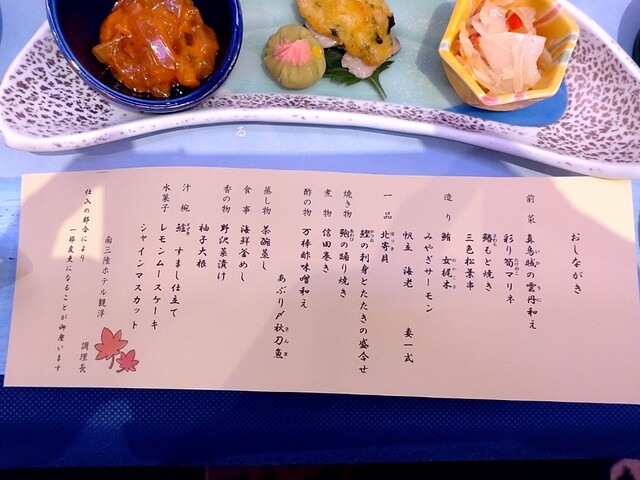 おしながき
前菜 真烏賊の雲丹和え
彩り筍マリネ
鰆もと焼き
三色松葉串
造り 鮪 女梶木
みやぎサーモン
帆立 海老 妻一式
一品 北寄貝
鰹の刺身とたたきの盛合せ
焼き物 鮑の踊り焼き
煮物 信田巻き
酢の物 万棒酢味噌和え
あぶり〆秋刀魚
蒸し物 茶碗蒸し
食事 海鮮釜めし
香の物 野沢菜漬け
柚子大根
汁椀 鱸 すまし仕立て
水菓子 レモンムースケーキ
シャインマスカット
南三陸ホテル観洋 調理長
仕入の都合により
一部変更になることが御座います
る